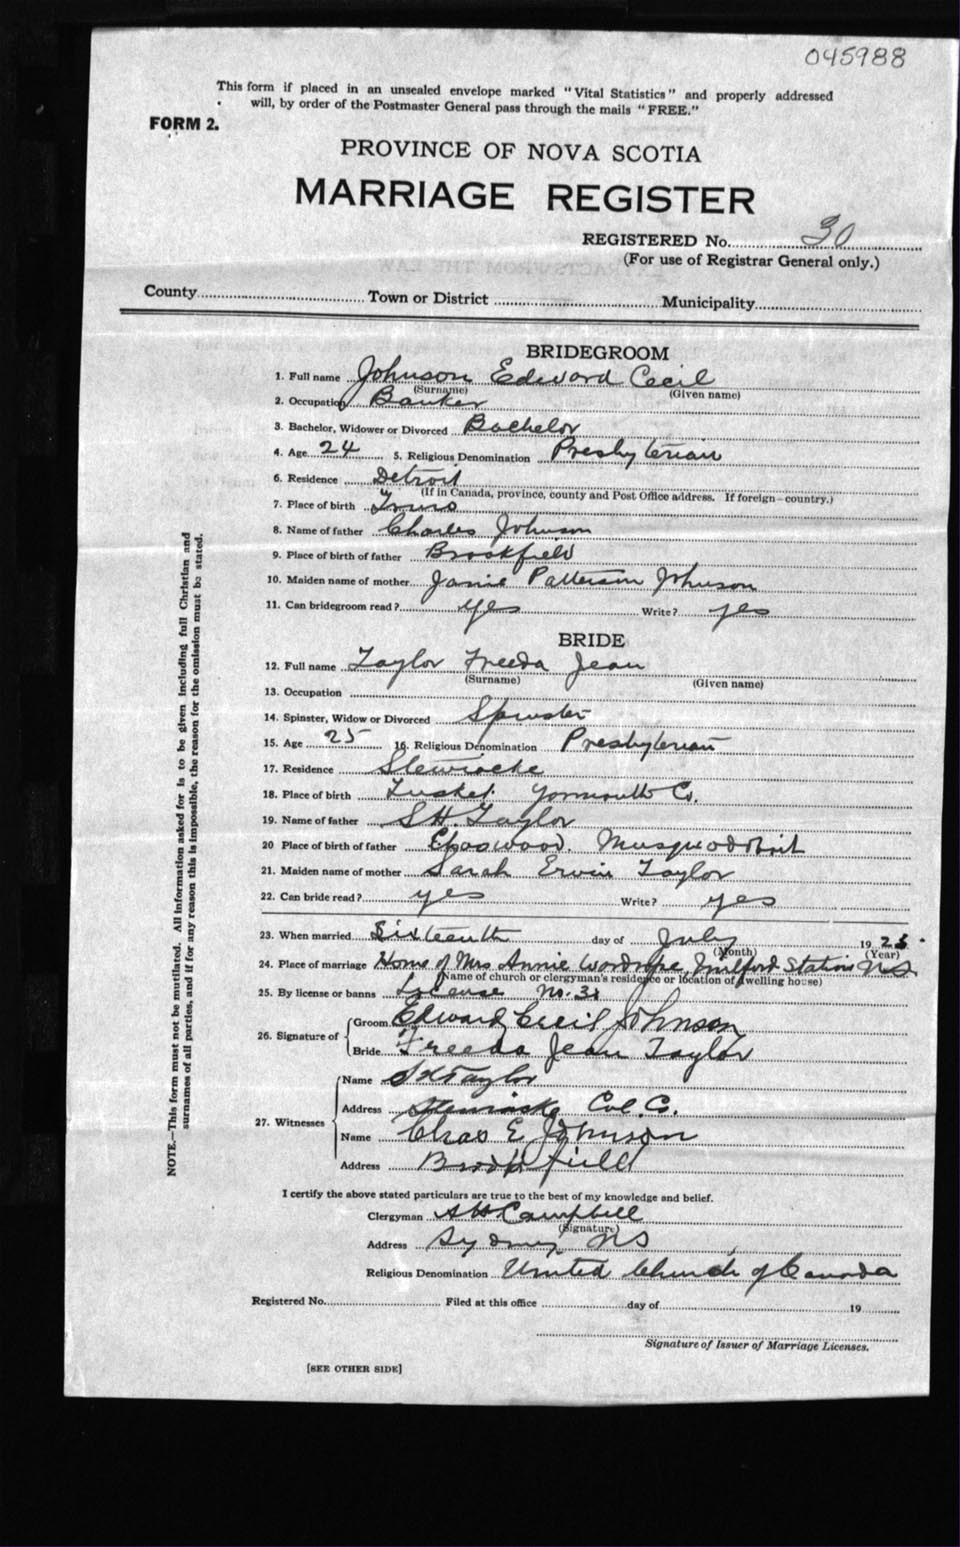 045988
This form if placed in an unsealed envelope marked "Vital Statistics" and properly addressed
will, by order of the Postmaster General pass through the mails "FREE."
FORM 2.
PROVINCE OF NOVA SCOTIA
MARRIAGE REGISTER
REGISTERED No. 30
(For use of Registrar General only.)
County Town or District Municipality
BRIDEGROOM
1. Full name Johnson Edward Cecil
(Surname) (Given name)
2. Occupation Banker
3. Bachelor, Widower or Divorced Bachelor
4. Age 24 5. Religious Denomination Presbyterian
6. Residence Detroit
(If in Canada, province, county and Post Office address. If foreign—country.)
7. Place of birth Truro
8. Name of father Charles Johnson
9. Place of birth of father Brookfield
10. Maiden name of mother Janie Patterson Johnson
11. Can bridegroom read? yes Write? yes
BRIDE
12. Full name Taylor Freeda Jean
(Surname) (Given name)
13. Occupation
14. Spinster, Widow or Divorced Spinster
15. Age 25 16. Religious Denomination Presbyterian
17. Residence Stewiacke
18. Place of birth Tusket Yarmouth Co.
19. Name of father S H. Taylor
20 Place of birth of father Chaswood. Musquodoboit
21. Maiden name of mother Sarah Ervin Taylor
22. Can bride read? yes Write? yes
23. When married Sixteenth day of July 192
(Month) (Year)
24. Place of marriage Home of Mrs Annie Wardrope, Milford Station NS
(Name of church or clergyman's residence or location of dwelling house)
25. By license or banns License No. 31
26. Signature of Groom Edward Cecil Johnson
Bride Freeda Jean Taylor
27. Witnesses
Name S H Taylor
Address Stewiacke Col. Co.
Name Chas E Johnson
Address Brookfield
I certify the above stated particulars are true to the best of my knowledge and belief.
Clergyman A H Campbell
(Signature)
Address Sydney NS
Religious Denomination United Church of Canada
Registered No. Filed at this office day of 19
Signature of Issuer of Marriage Licenses.
[SEE OTHER SIDE]
NOTE.—This form must not be mutilated. All information asked for is to be given including full Christian and
surnames of all parties, and if for any reason this is impossible, the reason for the omission must be stated.